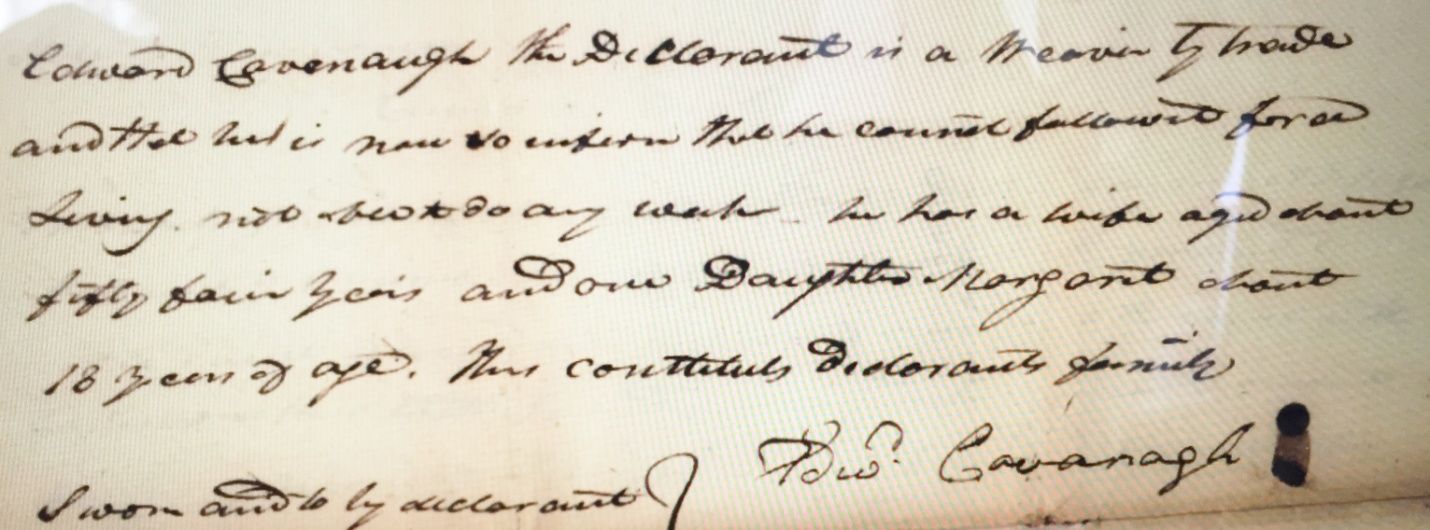 Edward Cavenaugh the Declarant is a Weaver by trade
and that he is now so infirm that he cannot follow it for a
Living. not able to do any work he has a wife aged about
fifty four years and one Daughter Margaret about
18 years of age. This constitutes declarants family
Edwd. Cavanagh
Sworn and to by declarant